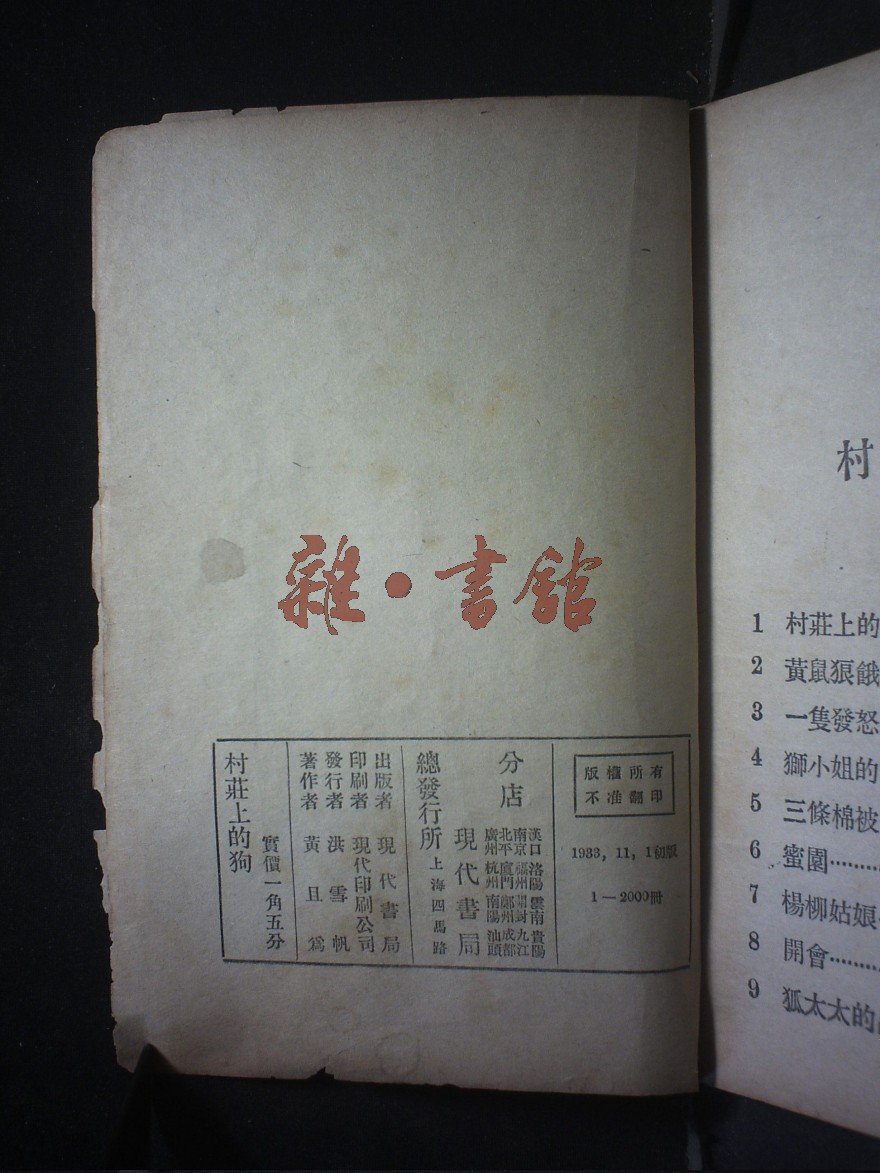 雜·書館
版權所有
不准翻印
1933, 11, 1初版
1—2000冊
分店
漢口 洛陽 雲南 貴陽
南京 福州 開封 九江
北平 廈門 鄭州 成都
廣州 杭州 南陽 汕頭
現代書局
總發行所 上海四馬路
出版者 現代書局
印刷者 現代印刷公司
發行者 洪雪帆
著作者 黃且為
實價一角五分
村莊上的狗
村
1 村莊上的
2 黃鼠狼餓
3 一隻發怒
4 獅小姐的
5 三條棉被
6 蜜園………
7 楊柳姑娘
8 開會………
9 狐太太的